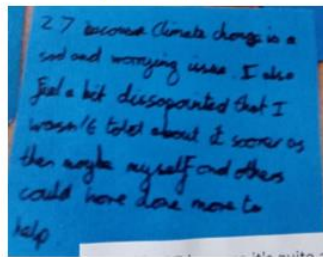 27 because Climate change is a
sad and worrying issue. I also
feel a bit dissapointed that I
wasn't told about it sooner as
then maybe myself and others
could have done more to
help.
it's quite